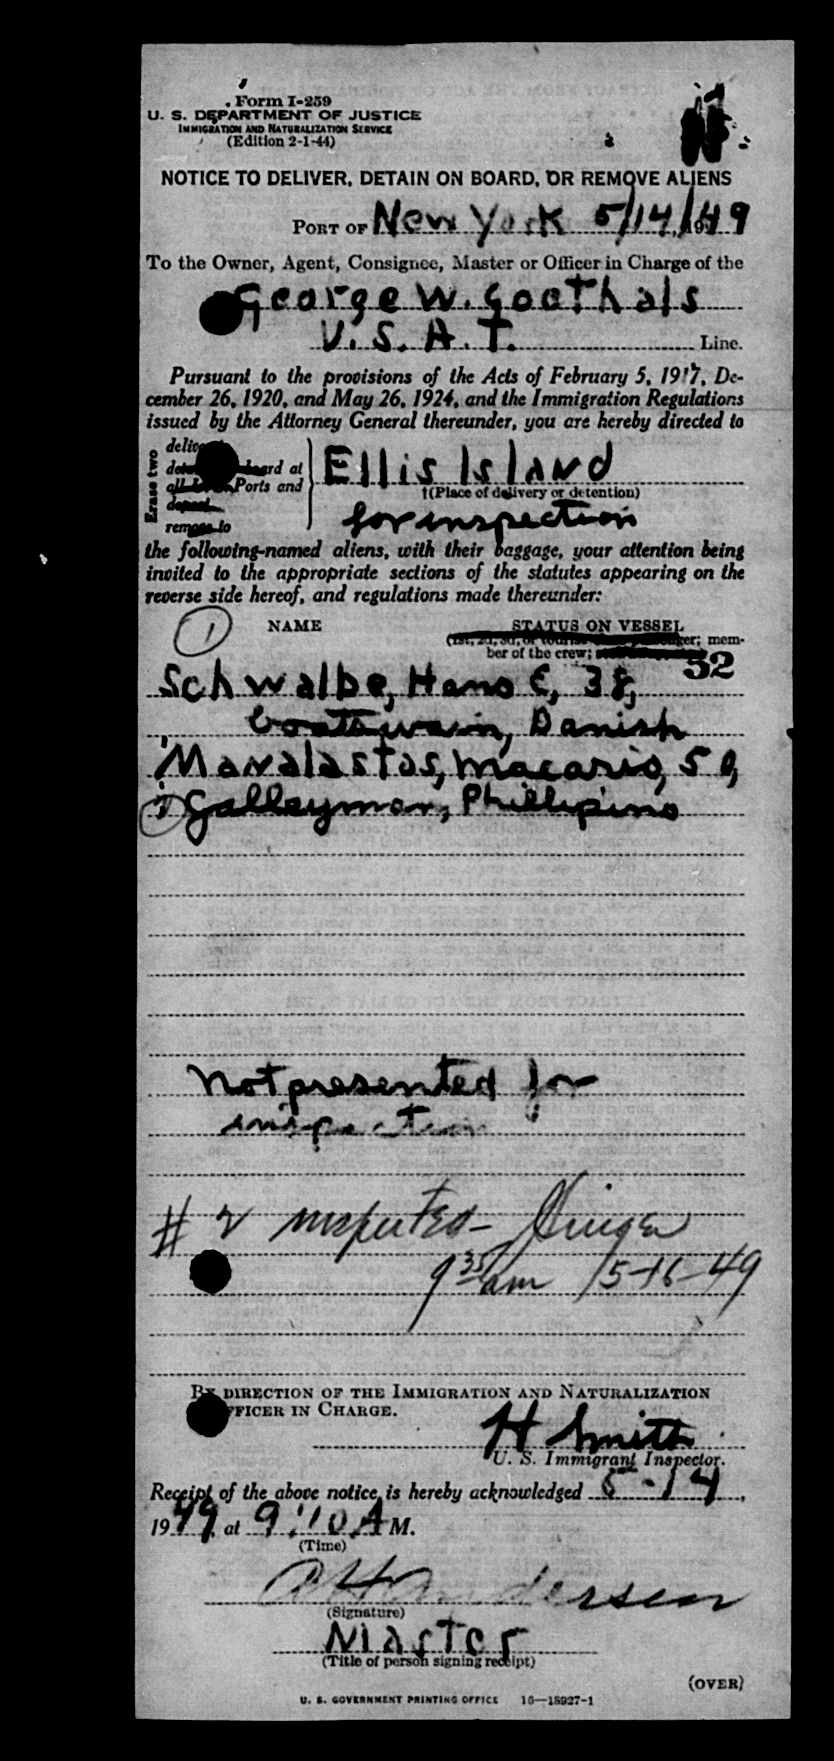 Form I-259
U. S. DEPARTMENT OF JUSTICE
IMMIGRATION AND NATURALIZATION SERVICE
(Edition 2-1-44)
NOTICE TO DELIVER, DETAIN ON BOARD, OR REMOVE ALIENS
PORT OF New York 5/14/, 1949
To the Owner, Agent, Consignee, Master or Officer in Charge of the
George W. Goethals
U.S.A.T. Line.
Pursuant to the provisions of the Acts of February 5, 1917, De-
cember 26, 1920, and May 26, 1924, and the Immigration Regulations
issued by the Attorney General thereunder, you are hereby directed to
Erase two
Ports and
remove to
Ellis Island
†(Place of delivery or detention)
for inspection
the following-named aliens, with their baggage, your attention being
invited to the appropriate sections of the statutes appearing on the
reverse side hereof, and regulations made thereunder:
1 NAME STATUS ON VESSEL
mem-
ber of the crew;
32
Schwalbe, Hans E, 38,
boatswain, Danish
Manalastas, Macario, 50,
Galleyman, Phillipino
Not presented for
inspection
# 2 inspected
9 35 am 5-16-49
BY DIRECTION OF THE IMMIGRATION AND NATURALIZATION
OFFICER IN CHARGE.
H Smith
U. S. Immigrant Inspector.
Receipt of the above notice is hereby acknowledged 5-14,
1949, at 9:10 A M.
(Time)
(Signature)
Master
(Title of person signing receipt)
(OVER)
U. S. GOVERNMENT PRINTING OFFICE 16—18927-1